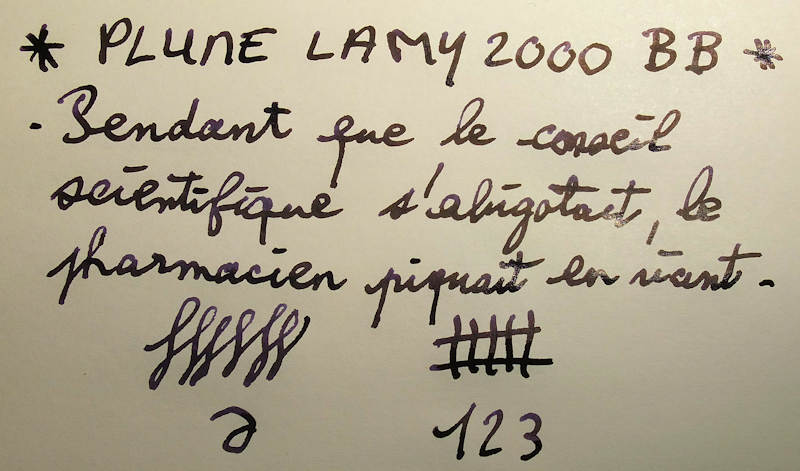 * PLUME LAMY 2000 BB *
- Pendant que le conseil
scientifique s'abigotait, le
pharmacien piquait en riant.
123